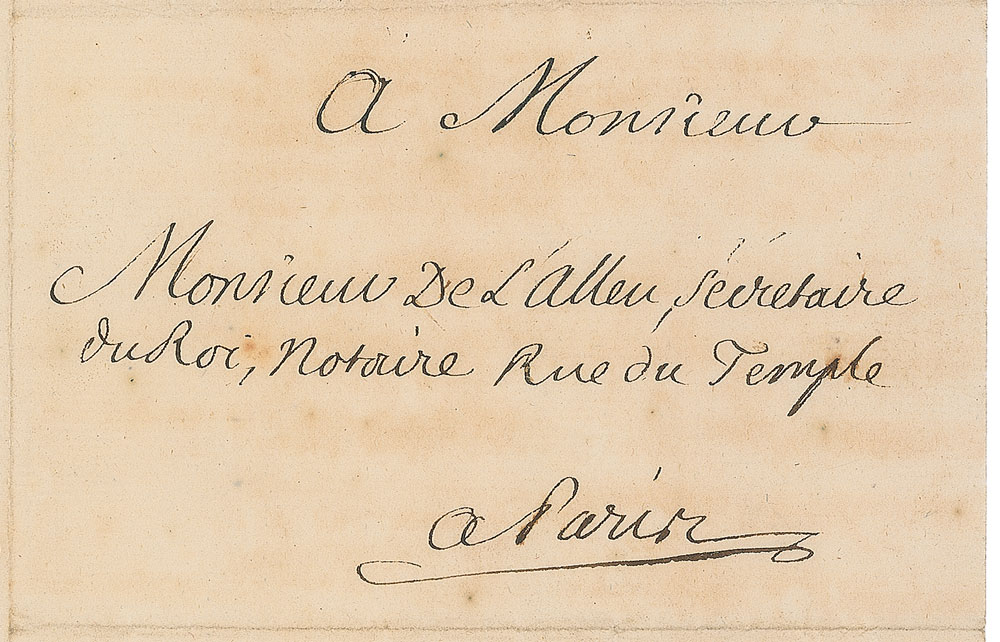 A Monsieur
Monsieur De L'Alleu, Sécretaire
du Roi, Notaire Rue du Temple
a Paris